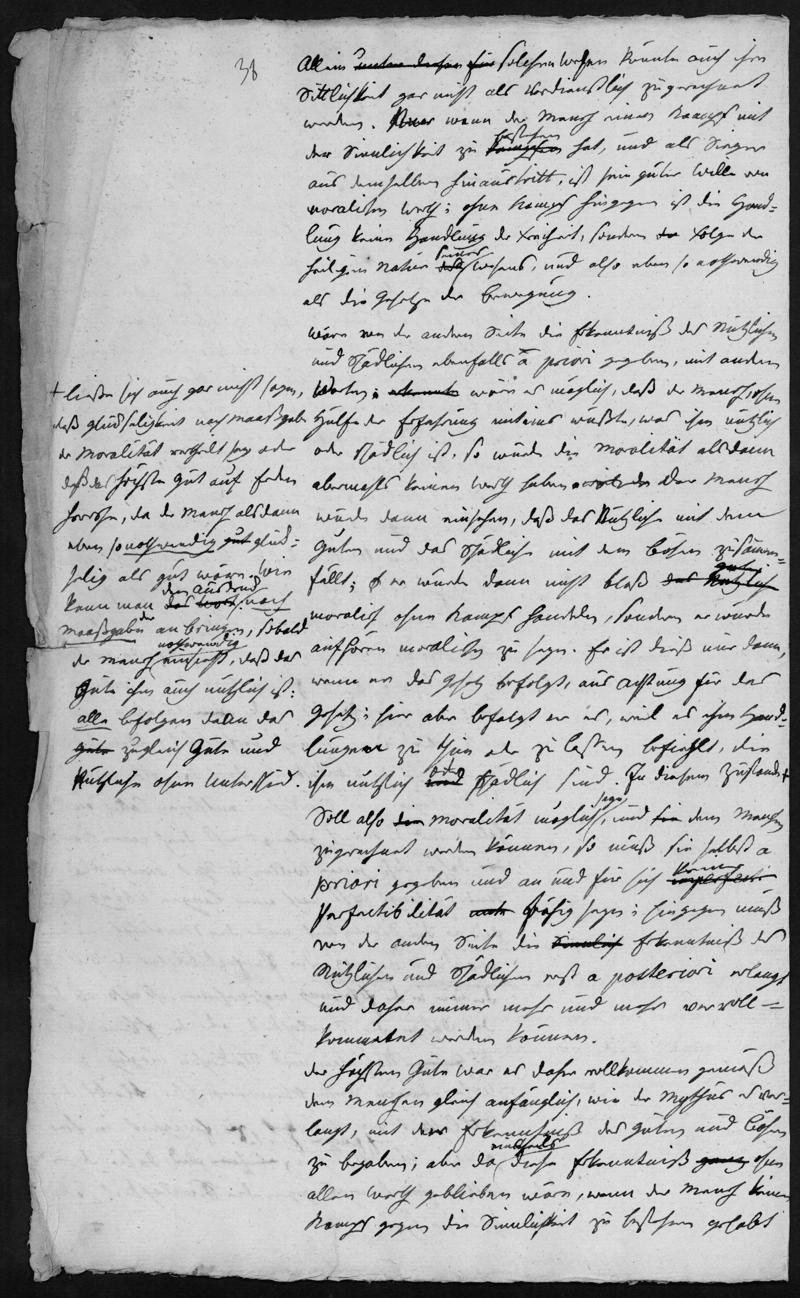 38
Allein unter diesen für solchen Wesen könnte auch ihre
Sittlichkeit gar nicht als verdienstlich zugerechnet
werden. Nur wenn der Mensch einen Kampf mit
der Sinnlichkeit zu kämpfen bestehen hat, und als Sieger
aus demselben hinaustritt, ist sein guter Wille von
moralischem Werth; ohne Kampf hingegen ist die Hand=
lung keine Handlung der Freiheit, sondern Folge der
heiligen Natur seines Wesens, und also eben so nothwendig
als die Gesetze der Bewegung.
Wäre von der andern Seite die Erkenntniß des Nützlichen
und Schädlichen ebenfalls a priori gegeben, mit andern
Worten; wäre es möglich, daß der Mensch, ohne
Hülfe der Erfahrung wüßte, was ihm nützlich
oder schädlich ist, so würde die Moralität alsdann
abermahls keinen Werth haben. Der Mensch
würde dann einsehen, daß das Nützliche mit dem
Guten und das Schädliche mit dem Bösen zusammen=
fällt; er würde dann nicht bloß das Nützliche
moralisch ohne Kampf handeln, sondern er würde
aufhören moralisch zu seyn. Er ist dieß nur dann,
wenn er das Gesetz befolgt, aus Achtung für das
Gesetz; hier aber befolgt er es, weil es ihm Hand=
lungen zu thun oder zu lassen befiehlt, die
ihm nützlich und oder schädlich sind. In diesem Zustande +
+ ließe sich auch gar nicht sagen,
daß Glückseligkeit nach Maaßgabe
der Moralität vertheilt sey oder
daß das höchste Gut auf Erden
herrsche, da der Mensch alsdann
eben so nothwendig gut glück=
selig als gut wäre. Wie
kann man das Wort den Ausdruck nach
Maaßgabe anbringen, sobald
der Mensch nothwendig einsieht, daß das
Gute ihm auch nützlich ist:
alle befolgen dann das
gute zugleich Gute und
Nützliche ohne Unterschied.
Soll also die Moralität möglich seyn, und sie dem Menschen
zugerechnet werden können, so muß sie selbst a
priori gegeben und an und für sich keiner
Perfectibilität fähig seyn; hingegen muß
von der andern Seite die Sinnlich Erkenntniß des
Nützlichen und Schädlichen erst a posteriori erlangt
und daher immer mehr und mehr vervoll=
kommnet werden können.
Der höchsten Güte war es daher vollkommen gemäß
den Menschen gleich anfänglich, wie der Mythus es ver=
langt, mit der Erkenntniß des Guten und Bösen
zu begaben; aber da diese Erkenntniß ganz ohne
allen Werth geblieben wäre, wenn der Mensch keinen
Kampf gegen die Sinnlichkeit zu bestehen gehabt